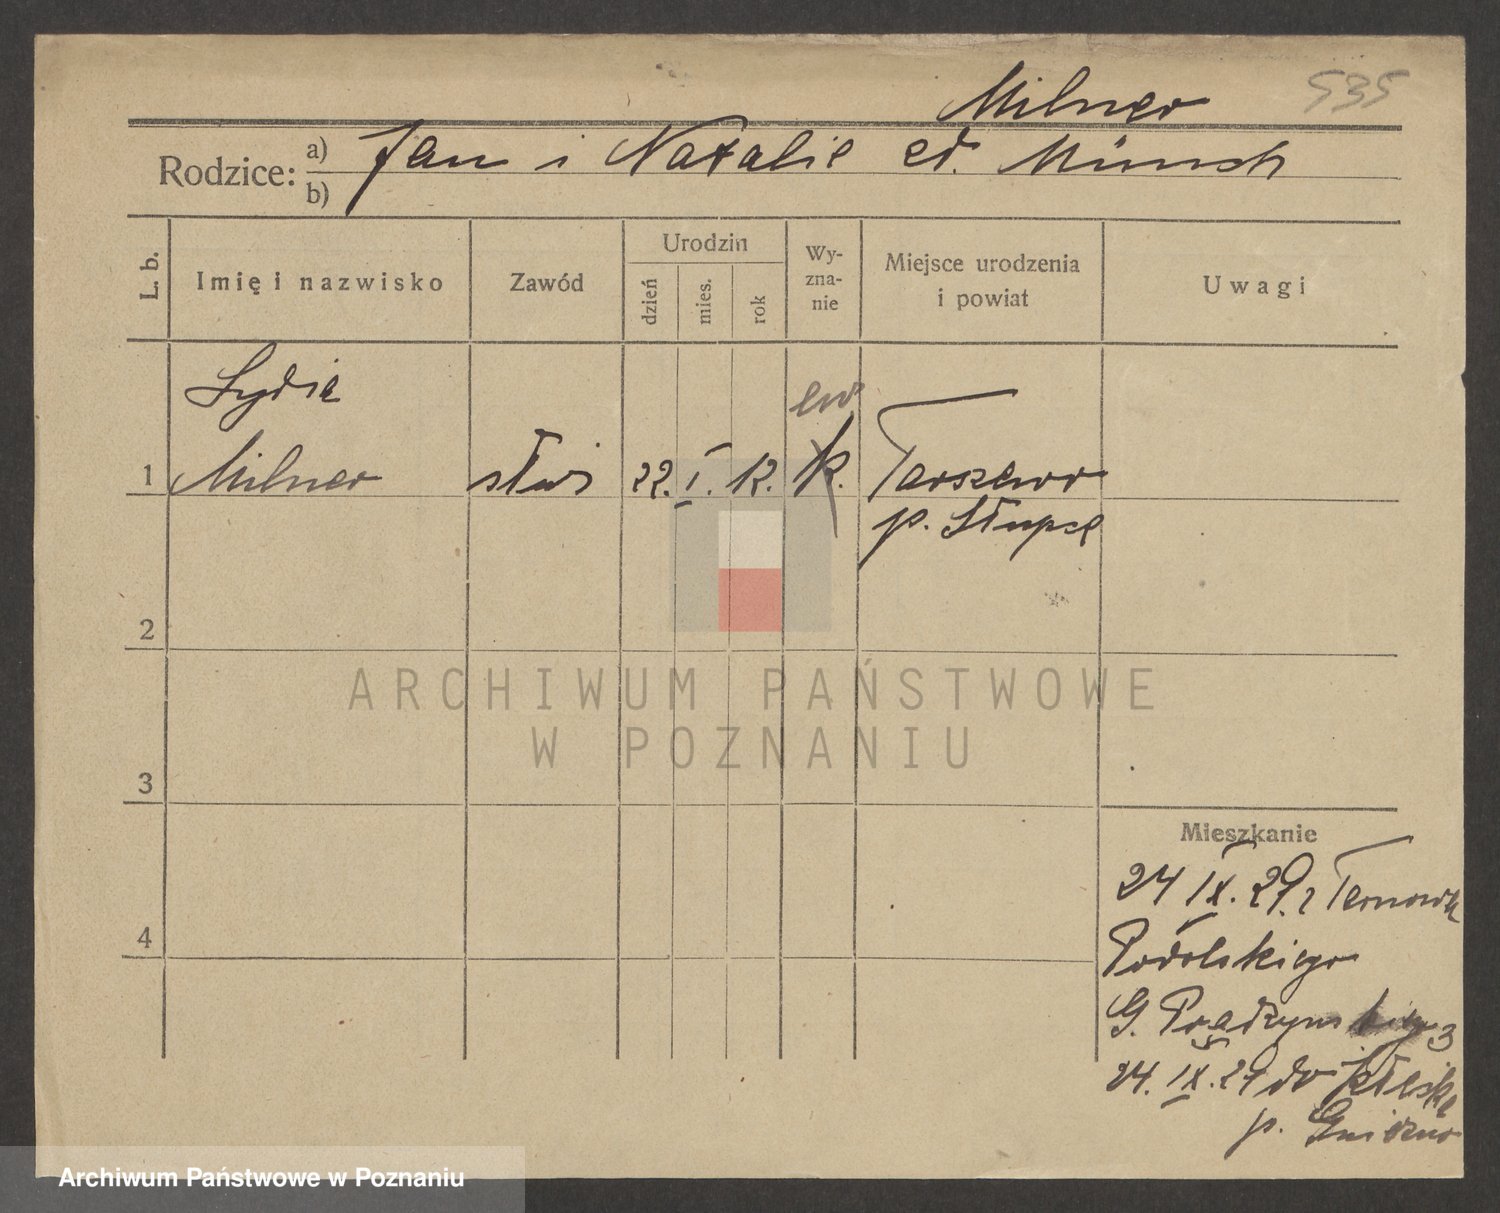 535
Milner
Rodzice: a) Jan i Natalie ed. Münch
b)
L. b.
Imię i nazwisko
Zawód
Urodzin
dzień
mies.
rok
Wy-
zna-
nie
Miejsce urodzenia
i powiat
Uwagi
Lydia
ew
1 Milner
22. I. 12.
k.
Tarszewo
p. Słupca
2
ARCHIWUM PAŃSTWOWE
W POZNANIU
3
Mieszkanie
24 IX. 29. z Tarnowa
4
Podolskiego
G. Prądzyńskiego 3
24. IX. 29 do Kłecka
p. Gniezno
Archiwum Państwowe w Poznaniu